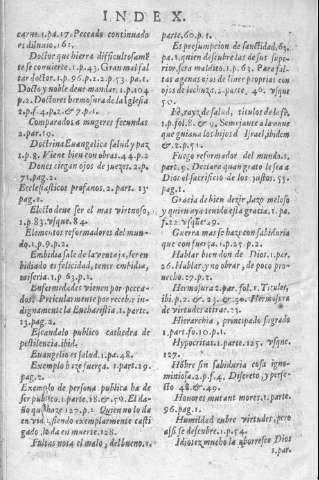 INDEX.
carne.1.pa.17. Peccado continuado
es diluuio.161.
Doctor que hierra difficultosamẽ
te se conuierte.1.p.43. Gran mal fal
tar doctor.1.p.96.p.2.2.p.53. pa.1.
Docto y noble deue mandar. 1.p.104
p.2. Doctores hermosura de la Iglesia
2.p.f.4.p.2.&.7.p.1.
Comparados a mugeres fecundas
2.par.19.
Doctrina Euangelica salud y paz
1.p.8. Viene bien con obras.44.p.2
Dones ciegan ojos de juezes.2.p.
71.pag.2.
Ecclesiasticos profanos.2.part. 13
pag.1.
Electo deue ser el mas virtuoso,
1.p.83.vsque.84.
Elementos reformadores del mun-
do.1.p.9.p.2.
Embidia sale de la ventaja, ser em
bidiado es felicidad, tener embidia,
miseria.1.p.63.p.1.
Enfermedades vienen por pecca-
dos. Particularmente por recebir in
dignamente la Eucharistia.1.parte.
13.pag.2.
Escandalo publico cathedra de
pestilencia.ibid.
Euangelio es salud.1.pa.48.
Exemplo haze fuerça. 1.part.29.
pag.2.
Exemplo de persona publica ha de
ser publico.1.parte.18.&.50. El da-
ño que haze 127.p.2. Quien no lo da
en vida, siendo exemplarmente casti
gado, lo da en muerte.128.
Faltas nota el malo, del bueno.1.
parte.60.p.1.
Es presumpcion de sanctidad.63.
pa.1. quien descubre las de sus supe-
rior, sera maldito.1.p.63. Para fal-
tas agenas ojos de lince, proprias con
ojos de lechuza.2.parte. 46. vsque
50.
Fè, rayz de salud, titulos de la fè,
1.p.fol.8.&.9. Semejante a la nuue
que guiaua los hijos d Israel, ibidem
&.2.p.51.
Fuego reformador del mundo.1.
part.9. Declara quan grato le sea a
Dios el sacrificio de los justos.55.
pag.1.
Gracia de bien dezir, lazo meloso
y quien vaya tendo esta gracia.1.pa.
f.22.vsque.29.
Guerra mas se haze con sabiduria
que con fuerça.1.p.25.p.2.
Hablar bien don de Dios.1.par.
26. Hablar, y no obrar, de poco pro-
uecho.27.p.2.
Hermosura 2.par.fol.1. Titulos,
ibi.p.2.&.23.&.30. Hermosura
de virtudes attrae.23.
Hierarchia, principado sagrado
1.part.fo.10.p.1.
Hypocritas.1.parte.125. vsque.
127.
Hõbre sin sabiduria cosa igno-
miniosa.2.p.f.4. Discreto, y perfe-
cto 48.&.49.
Honores mutant mores.1.parte.
96.pag.1.
Humildad cubre virtudes, pero
assi se descubre.1.p.54.
Idiotez mucho la aborrece Dios
1.par.